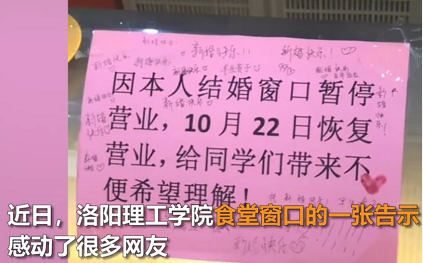 新婚快乐!!! 新婚快乐!
新婚快乐
因本人结婚窗口暂停
营业，10月22日恢复
营业，给同学们带来不
便希望理解！
新婚快乐
近日，洛阳理工学院食堂窗口的一张告示
感动了很多网友